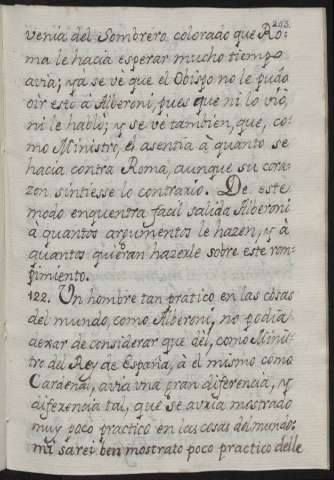 203.
venia del Sombrero colorado que Ro-
ma le hacia esperar mucho tiempo
avia; ya se vè que el Obispo no le pudo
oir esto à Alberoni, pues que ni lo viò,
ni le hablò; y se vè tambien, que, co-
mo Ministro, el asentia à quanto se
hacia contra Roma, aunque su cora-
zon sintiesse lo contrario. De este
modo enquentra facil salida Alberoni
à quantos argumentos le hazen, y à
quantos quieran hazerle sobre este rom-
pimiento.
122. Un hombre tan pratico en las cosas
del mundo, como Alberoni, no podia
dexar de considerar que dèl, como Minis-
tro del Rey de España, à el mismo como
Cardenal, avia una gran diferencia, y
diferencia tal, que se avria mostrado
muy poco practico en las cosas del mundo:
mi sarei ben mostrato poco practico delle